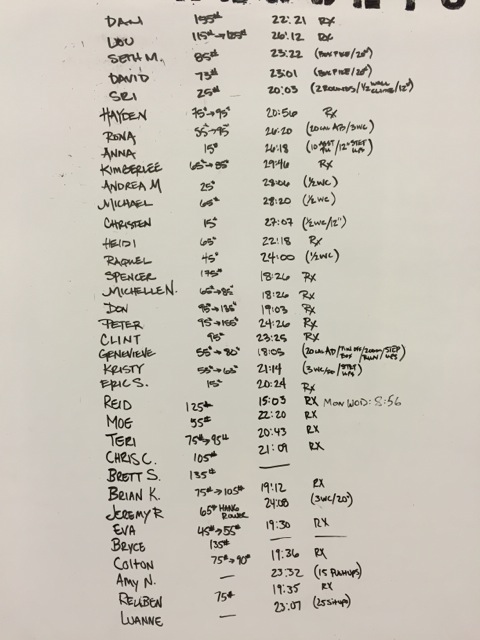 DAN 155# 22:21 RX
LOU 115#→125# 26:12 RX
SETH M. 85# 23:22
DAVID 73# 23:01
SRI 25# 20:03 (2 ROUNDS/½ WALL CLIMB/12")
HAYDEN 75#→95# 20:56 RX
RONA 55#→75# 26:20 (20 CAL AD/3WC)
ANNA 15# 26:18 /12" STEP UPS)
KIMBERLEE 65#→85# 29:46 RX
ANDREA M 25# 28:06 (½WC)
MICHAEL 65# 28:20 (½WC)
CHRISTEN 15# 27:07 (½WC/12")
HEIDI 65# 22:18 RX
RAQUEL 45# 24:00 (½WC)
SPENCER 175# 18:26 RX
MICHELLE N. 65#→85# 18:26 RX
DON 95#→135# 19:03 RX
PETER 95#→155# 24:26 RX
CLINT 95# 23:25 RX
GENEVIEVE 55#→80# 18:05 (20 CAL AD/ RUN/STEP UPS)
KRISTY 55#→65# 21:14 (3WC/ STEP UPS)
ERIC S. 15# 20:24 RX
REID 125# 15:03 RX MON WOD: 8:56
MOE 55# 22:20 RX
TERI 75#→95# 20:43 RX
CHRIS C. 105# 21:09 RX
BRETT S. 135# —
BRIAN K. 75#→105# 19:12 RX
JEREMY R 65# HANG POWER 24:08 (3WC/20")
EVA 45#→55# 19:30 RX
BRYCE 135# — —
COLTON 75#→90# 19:36 RX
AMY N. — 23:32 (15 PUSHUPS)
REUBEN 75# 19:35 RX
LUANNE — 23:07 (25 SITUPS)